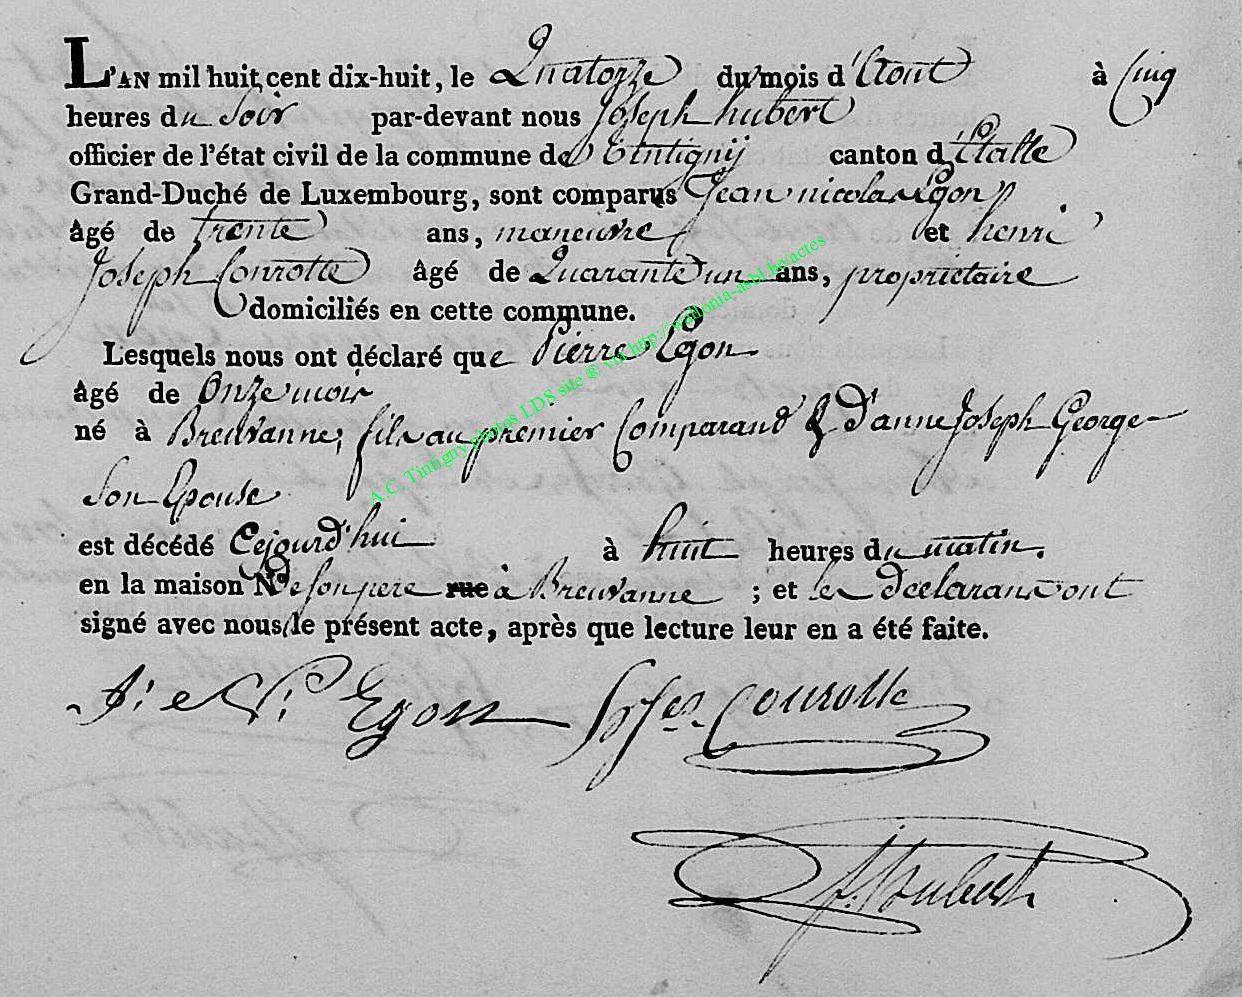 L'AN mil huit cent dix-huit, le Quatorze du mois d'Aout à Cinq
heures du Soir par-devant nous Joseph hubert
officier de l'état civil de la commune de Tintigny canton d'Etalle
Grand-Duché de Luxembourg, sont comparus Jean nicolas Egon
âgé de trente ans, manuvre et henri
Joseph Conrotte âgé de Quarante un ans, proprietaire
domiciliés en cette commune.
Lesquels nous ont déclaré que Pierre Egon
âgé de Onze mois
né à Breuvanne, fils au premier Comparand & d'anne Joseph George
Son Epouse
est décédé Cejourd'hui à huit heures du matin.
en la maison N° de son pere rue à Breuvanne ; et les declarans ont
signé avec nous le présent acte, après que lecture leur en a été faite.
J: N: Egon Conrotte
J. Hubert
A.C. Tintigny photos LDS site ® via http://wallonia-asbl.be/actes